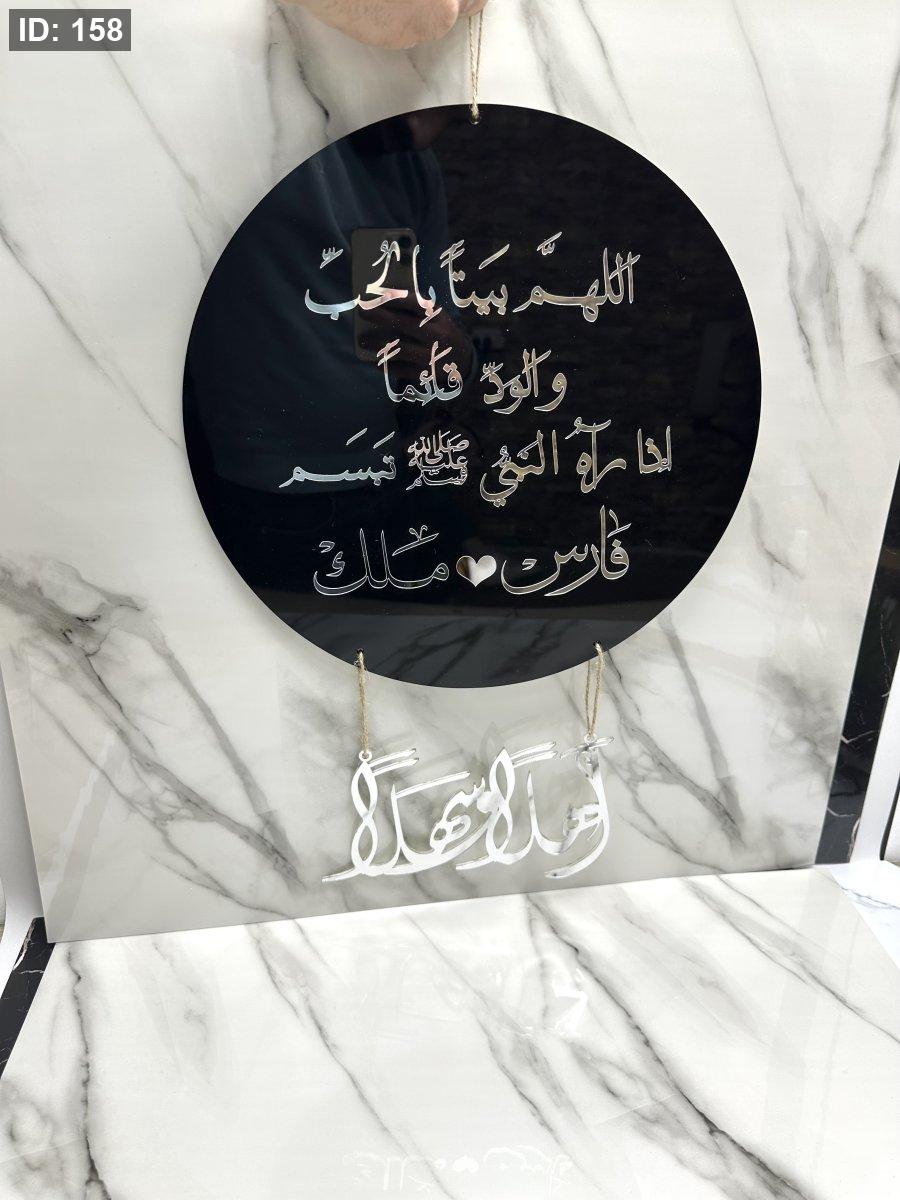 ID: 158
اللهمَّ بَيتاً بِالحُبِّ
والودِّ قائماً
إذا رآهُ النبيُّ ﷺ تبَسَم
فارس ♥ ملك
أهلاً وسهلاً